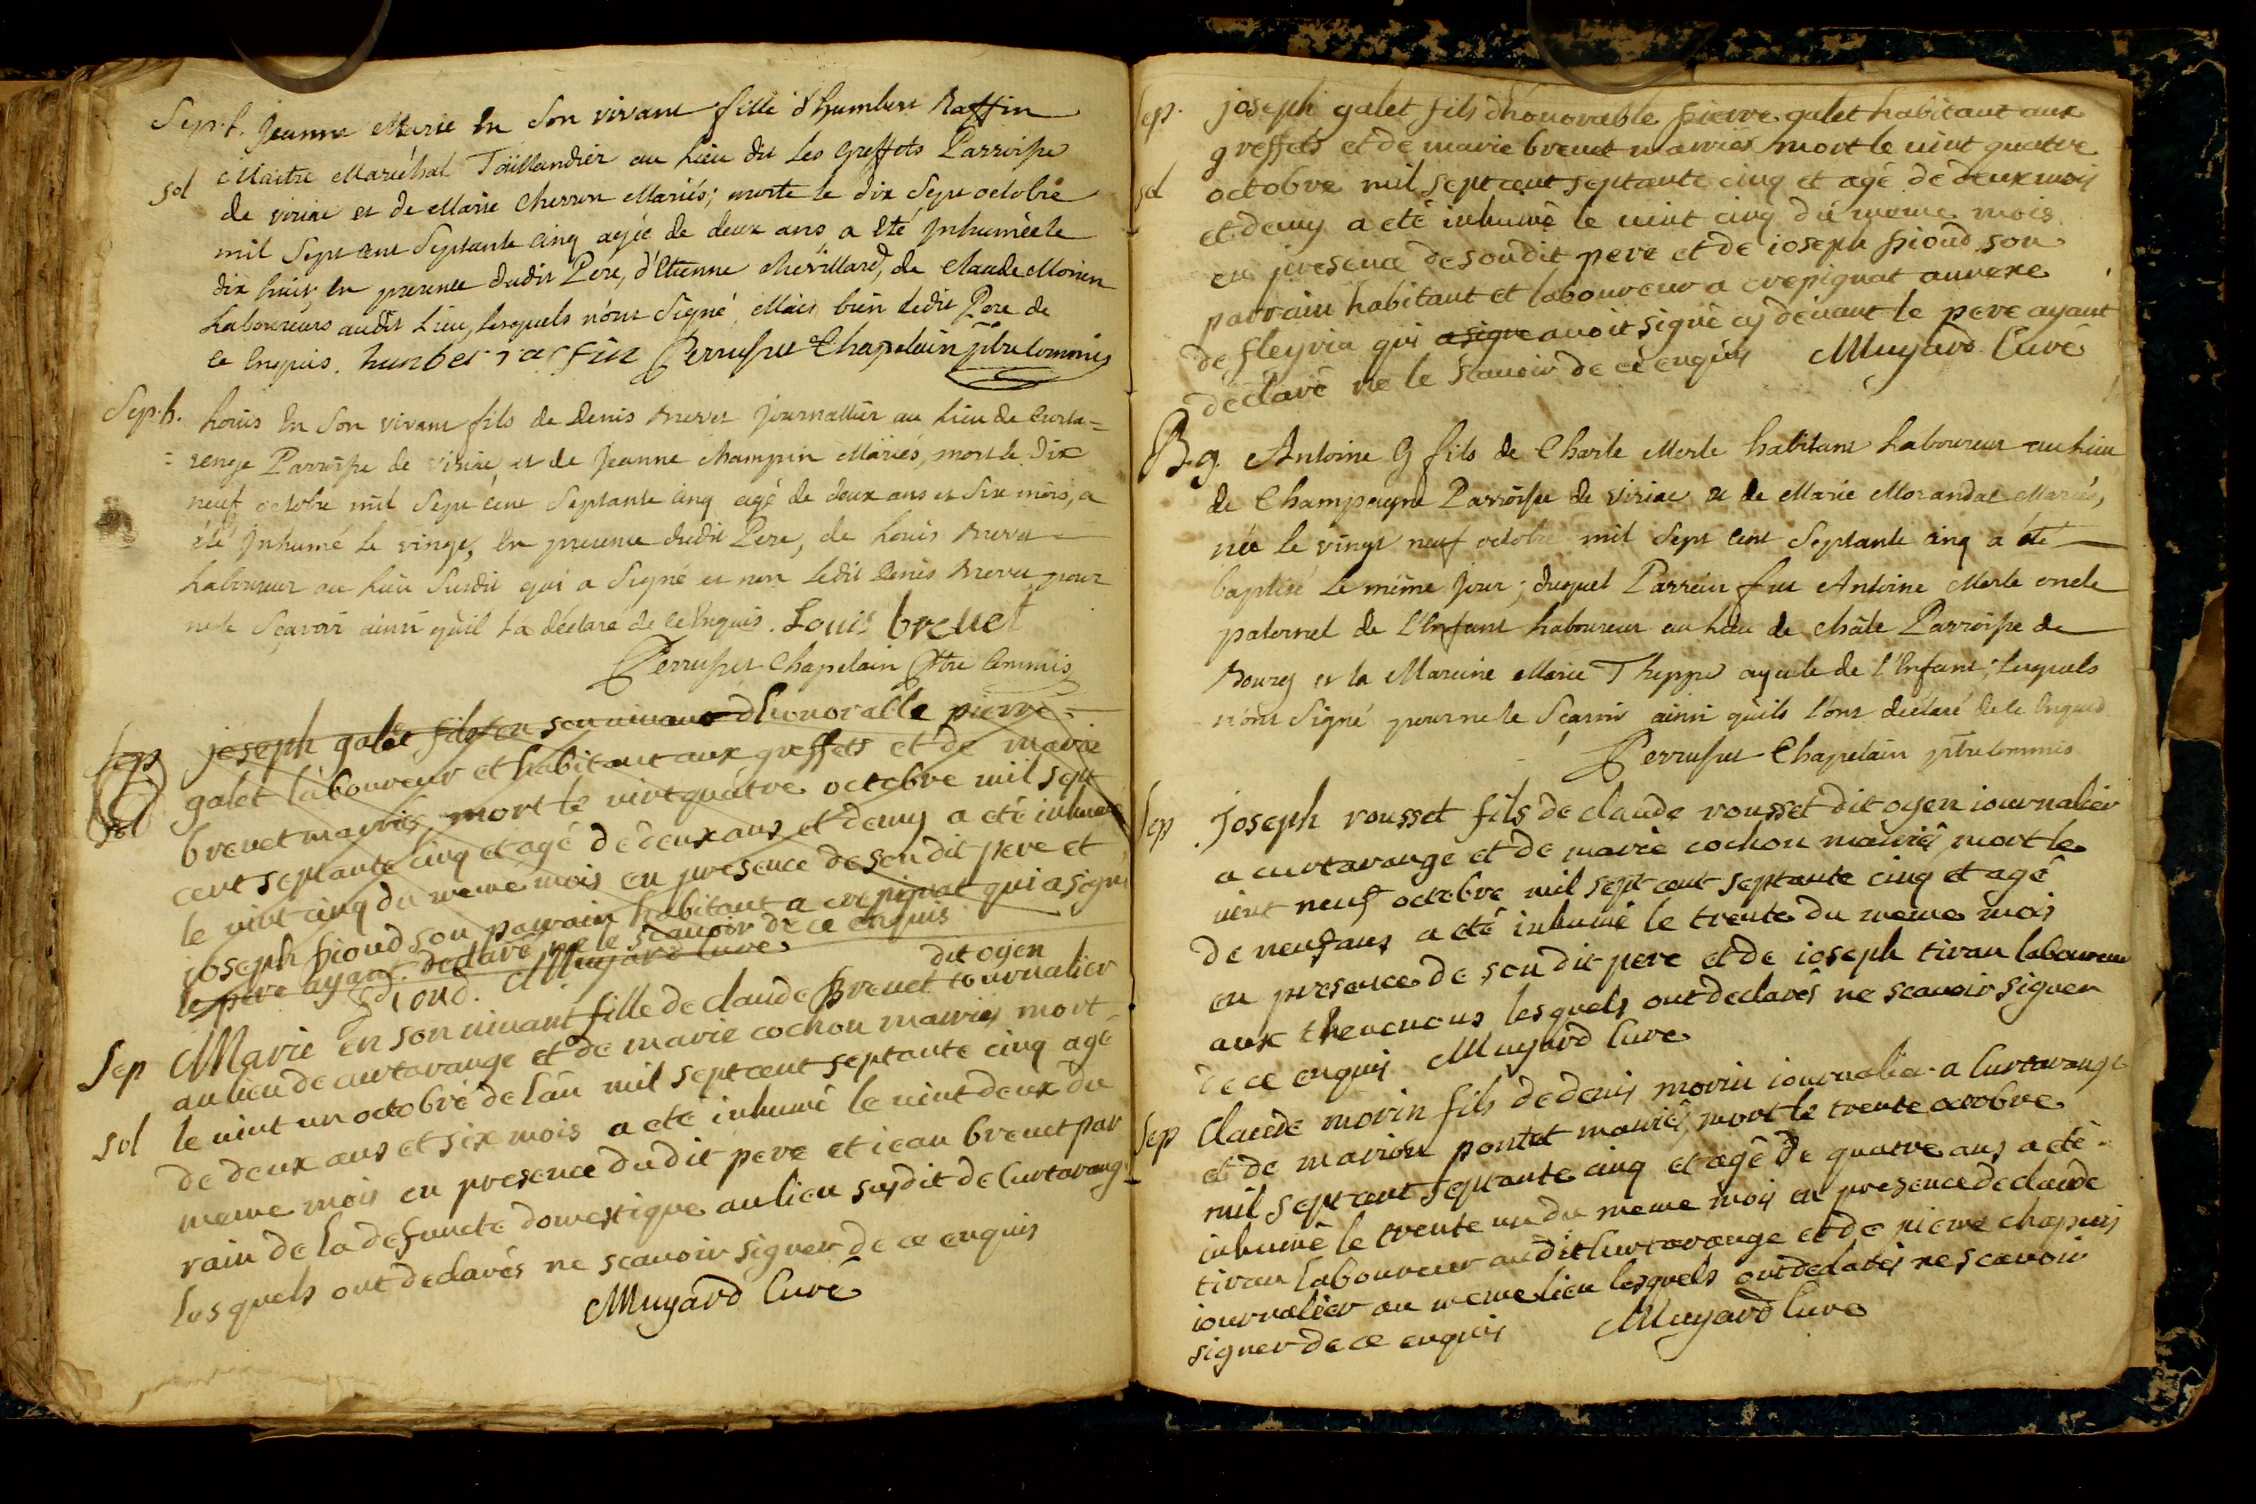 Sept. Jeanne Marie En Son vivant fille d'humbert Raffin
Maitre Maréchal Taillandier au Lieu dit Les Greffets Parroisse
sol de viriac et de Marie Cherron Mariés; morte le dix Sept octobre
mil Sept cent Septante Cinq agée de deux ans a Eté Inhumée le
dix huit, En presence dudit Pere, d'Etienne Chevillard, de Claude Monin
Laboureurs audit Lieu, lesquels n'ont Signé, Mais bien ledit Pere de
ce Enquis. hunber rarfin Perrusset Chapelain ptre Commis
Sep.h. Louis En Son vivant fils de Denis Brevet Journallier au Lieu de Curta=
=renge Parroisse de viriac et de Jeanne Champin Mariés, mort le Dix
neuf octobre mil Sept cent Septante Cinq agé de deux ans et Six mois, a
été Inhumé le vingt, En presence dudit Pere, de Louis Brevet
Laboureur au Lieu Susdit qui a Signé et non ledit Denis Brevet pour
ne le Sçavoir ainsi qu'il l'a déclaré de ce Enquis. Louis brevet
Perrusset Chapelain Ptre Commis
Sep joseph galet fils en son vivant d'honorable pierre
galet laboureur et habitant aux greffets et de marie
sol brevet marriés, mort le vint quatre octobre mil sept
cent septante cinq et agé de deux ans et demy a eté inhumé
le vint cinq du meme mois en presence de son dit pere et
joseph pioud son parrain habitant a crepignat qui a signé
le pere ayant declaré ne le scavoir de ce enquis
Pioud. Muyard Curé
dit oyen
Sep Marie en son vivant fille de claude Brevet tournalier
au lieu de curtarange et de marie cochon marriés mort
le vint un octobre de l'an mil sept cent septante cinq agé
sol de deux ans et six mois a eté inhumé le vint deux du
meme mois en presence du dit pere et iean brevet par
rain de la defuncte domestique au lieu susdit de Curtarang
lesquels ont declarés ne scavoir signer de ce enquis
Muyard Curé
Sep. joseph galet fils d'honorable pierre galet habitant aux
greffets et de marie brevet marriés mort le vint quatre
sol octobre mil sept cent septante cinq et agé de deux mois
et demy a eté inhumé le vint cinq du meme mois
en presence de son dit pere et de ioseph pioud son
parrain habitant et laboureur a crepignat annexe
de fleyria qui a signé avoit signé cy devant le pere ayant
declaré ne le scavoir de ce enquis Muyard Curé
B.g. Antoine G fils de Charle Merle habitant Laboureur au Lieu
de Champagne Parroisse de viriac et de Marie Morandat Mariés,
née Le vingt neuf octobre mil Sept Cent Septante Cinq a été
baptisé Le même Jour; duquel Parrein fut Antoine Merle oncle
paternel de L'Enfant Laboureur au Lieu de Parroisse de
Bourg et la Mareine Marie Theppe ayeule de l'Enfant; lesquels
n'ont Signé pour ne le Sçavoir ainsi qu'ils l'ont déclaré de ce Enquis
Perrusset Chapelain ptre Commis
Sep joseph rousset fils de claude rousset dit oyen iournalier
a curtarange et de marie cochon mariés, mort le
vint neuf octobre mil sept cent septante cinq et agé
de neuf ans a eté inhumé le trente du meme mois
en presence de son dit pere et de ioseph tiran laboureur
aux thevenons lesquels ont declarés ne scavoir signer
de ce enquis Muyard Curé
Sep Claude morin fils de denis morin iournalier a Curtarange
et de marion pontet mariés, mort le trente octobre
mil sept cent septante cinq et agé de quatre ans a eté
inhumé le trente un du meme mois en presence de claude
tiran laboureur audit Curtarange et de pierre chapuis
iournalier au meme lieu lesquels ont declarés ne scavoir
signer de ce enquis Muyard Curé